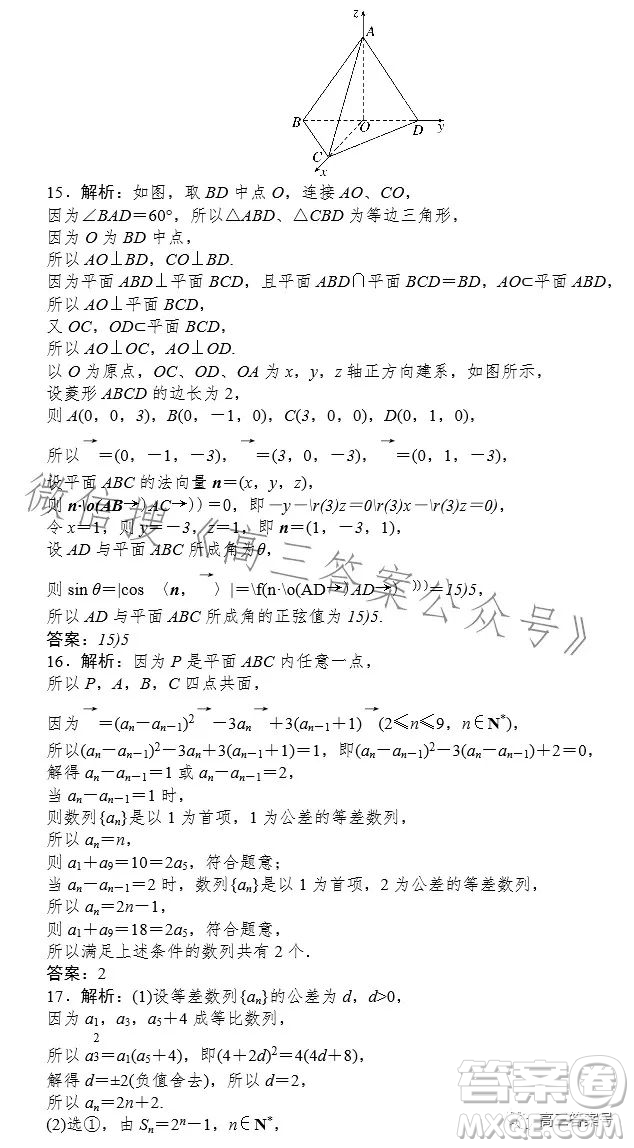 z
A
B
O
D
y
C
x
15．解析：如图，取 BD 中点 O，连接 AO、CO，
因为∠BAD＝60°，所以△ABD、△CBD 为等边三角形，
因为 O 为 BD 中点，
所以 AO⊥BD，CO⊥BD.
因为平面 ABD⊥平面 BCD，且平面 ABD∩平面 BCD＝BD，AO⊂平面 ABD，
所以 AO⊥平面 BCD，
又 OC，OD⊂平面 BCD，
所以 AO⊥OC，AO⊥OD.
以 O 为原点，OC、OD、OA 为 x，y，z 轴正方向建系，如图所示，
设菱形 ABCD 的边长为 2，
则 A(0，0，3)，B(0，－1，0)，C(3，0，0)，D(0，1，0)，
所以→＝(0，－1，－3)，→＝(3，0，－3)，→＝(0，1，－3)，
设平面 ABC 的法向量 n＝(x，y，z)，
则 n·o(AB→)AC→))＝0，即－y－\r(3)z＝0\r(3)x－\r(3)z＝0)，
令 x＝1，则 y＝－3，z＝1，即 n＝(1，－3，1)，
设 AD 与平面 ABC 所成角为θ，
则 sin θ＝|cos 〈n，→〉|＝\f(n·\o(AD→)AD→)))＝15)5，
所以 AD 与平面 ABC 所成角的正弦值为 15)5.
答案：15)5
16．解析：因为 P 是平面 ABC 内任意一点，
所以 P，A，B，C 四点共面，
因为→＝(aₙ－aₙ₋₁)²→－3aₙ→＋3(aₙ₋₁＋1)→(2≤n≤9，n∈N*)，
所以(aₙ－aₙ₋₁)²－3aₙ＋3(aₙ₋₁＋1)＝1，即(aₙ－aₙ₋₁)²－3(aₙ－aₙ₋₁)＋2＝0，
解得 aₙ－aₙ₋₁＝1 或 aₙ－aₙ₋₁＝2，
当 aₙ－aₙ₋₁＝1 时，
则数列{aₙ}是以 1 为首项，1 为公差的等差数列，
所以 aₙ＝n，
则 a₁＋a₉＝10＝2a₅，符合题意；
当 aₙ－aₙ₋₁＝2 时，数列{aₙ}是以 1 为首项，2 为公差的等差数列，
所以 aₙ＝2n－1，
则 a₁＋a₉＝18＝2a₅，符合题意，
所以满足上述条件的数列共有 2 个．
答案：2
17．解析：(1)设等差数列{aₙ}的公差为 d，d>0，
因为 a₁，a₃，a₅＋4 成等比数列，
所以 a₃²＝a₁(a₅＋4)，即(4＋2d)²＝4(4d＋8)，
解得 d＝±2(负值舍去)，所以 d＝2，
所以 aₙ＝2n＋2.
(2)选①，由 Sₙ＝2ⁿ－1，n∈N*，
微信搜《高三答案公众号》
答案圈
MXQE.COM
高三答案号